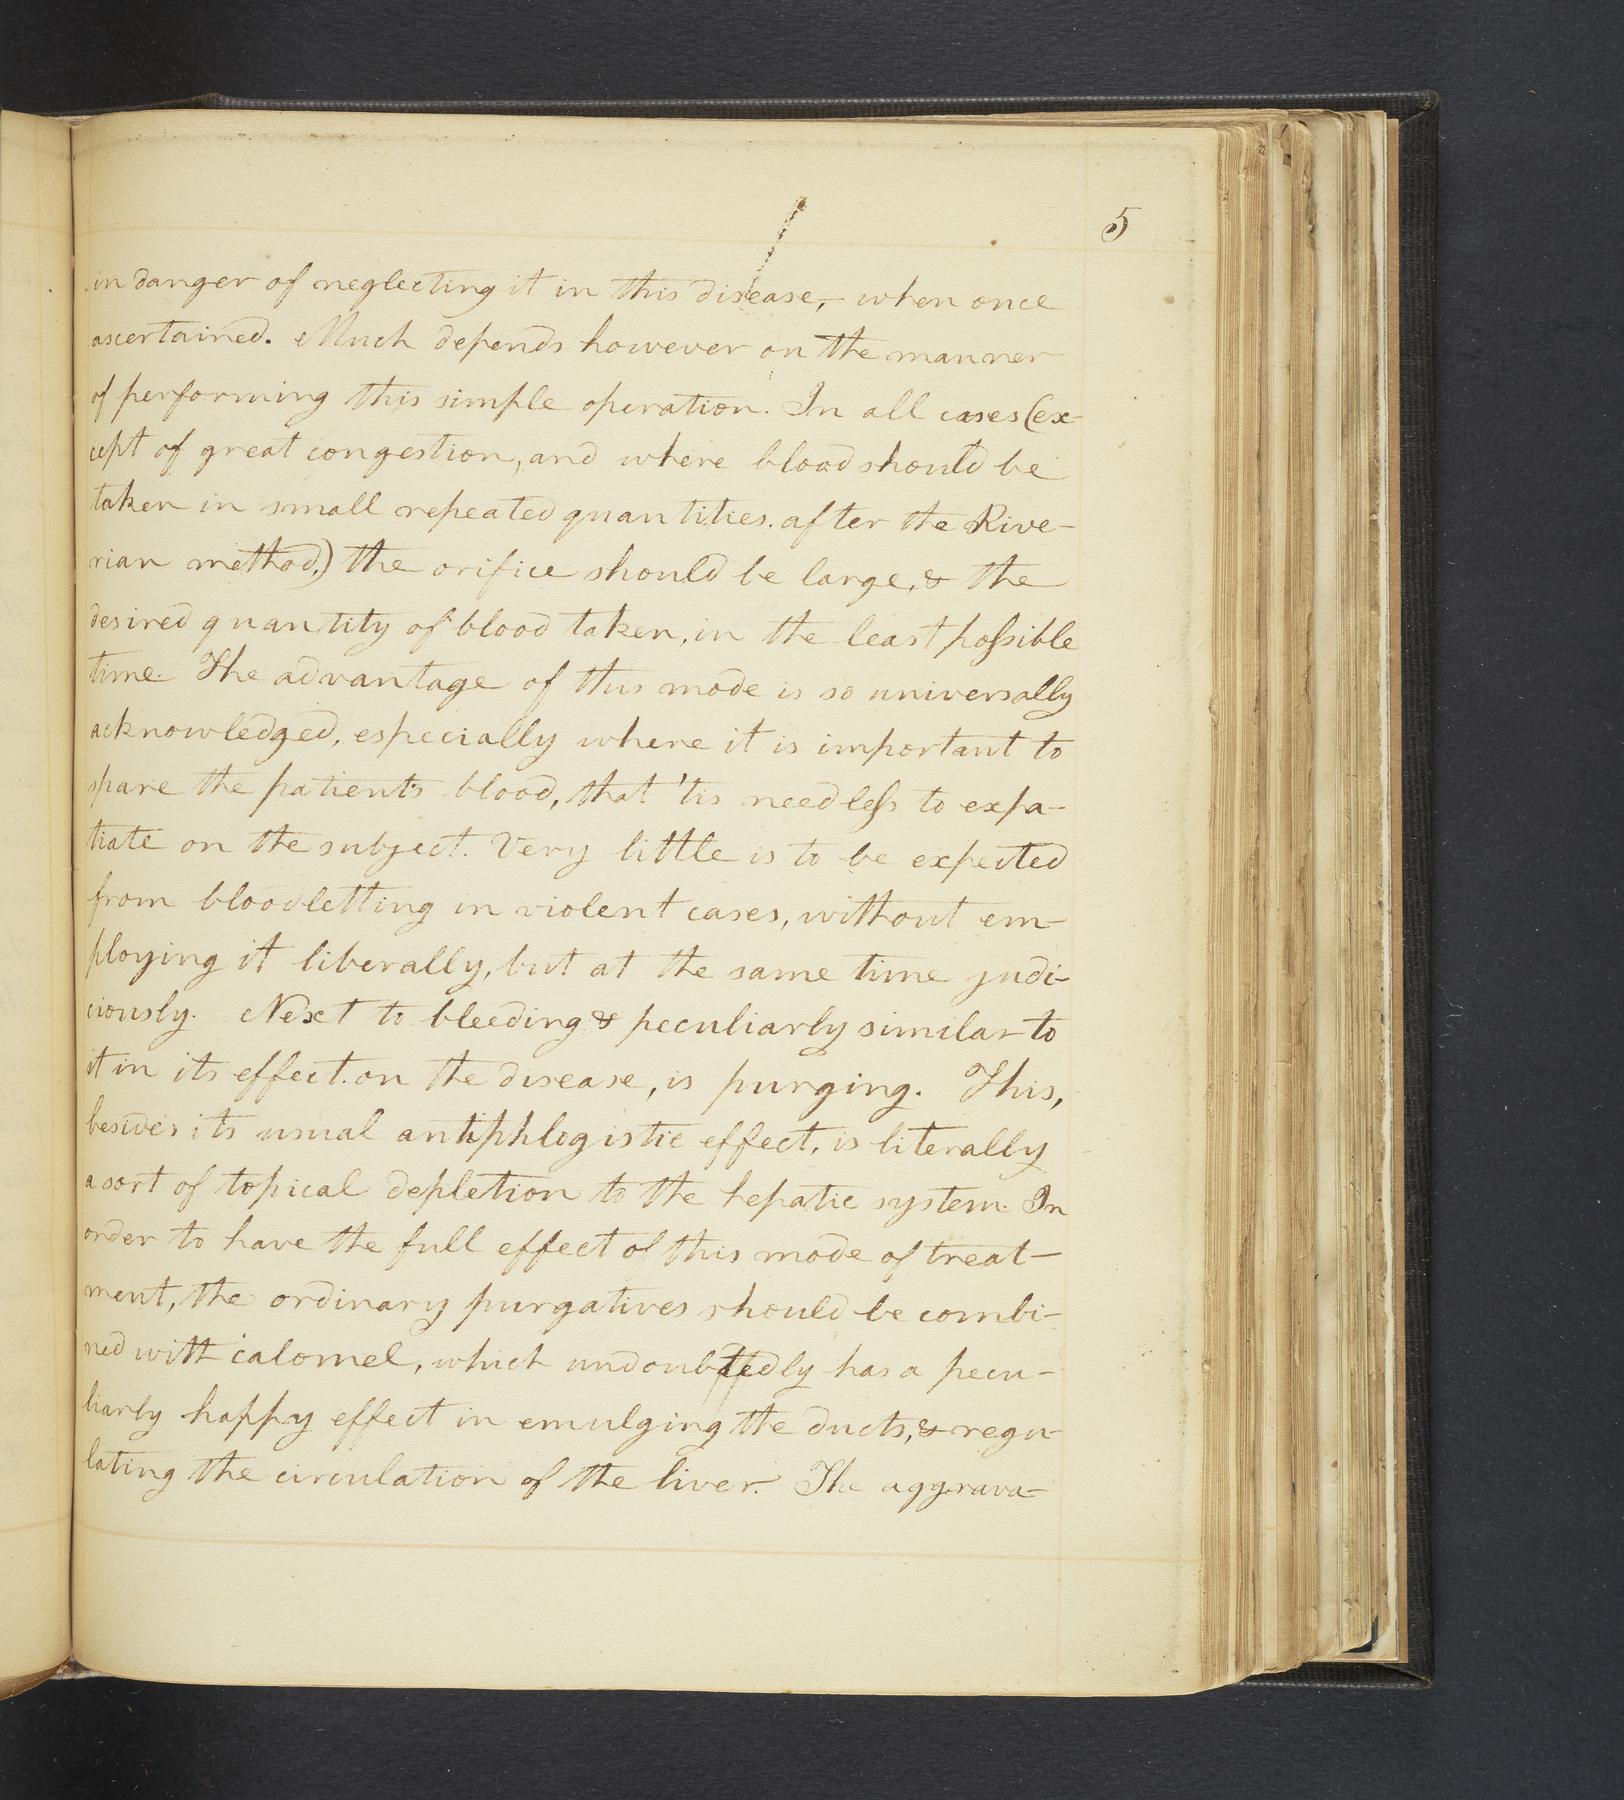 5
in danger of neglecting it in this disease, – when once
ascertained. Much depends however on the manner
of performing this simple operation. In all cases (ex-
cept of great congestion, and where blood should be
taken in small repeated quantities. after the Rive-
rian method.) the orifice should be large, & the
desired quantity of blood taken, in the least possible
time. The advantage of this mode is so universally
acknowledged, especially where it is important to
spare the patient's blood, that 'tis needless to expa-
tiate on the subject. Very little is to be expected
from bloodletting in violent cases, without em-
ploying it liberally, but at the same time judi-
ciously. Next to bleeding & peculiarly similar to
it in its effect. on the disease, is purging. This,
besides its usual antiphlogistic effect, is literally
a sort of topical depletion to the hepatic system. In
order to have the full effect of this mode of treat-
ment, the ordinary purgatives should be combi-
ned with calomel, which undoubtedly has a pecu-
liarly happy effect in emulging the ducts, & regu-
lating the circulation of the liver. The aggrava-